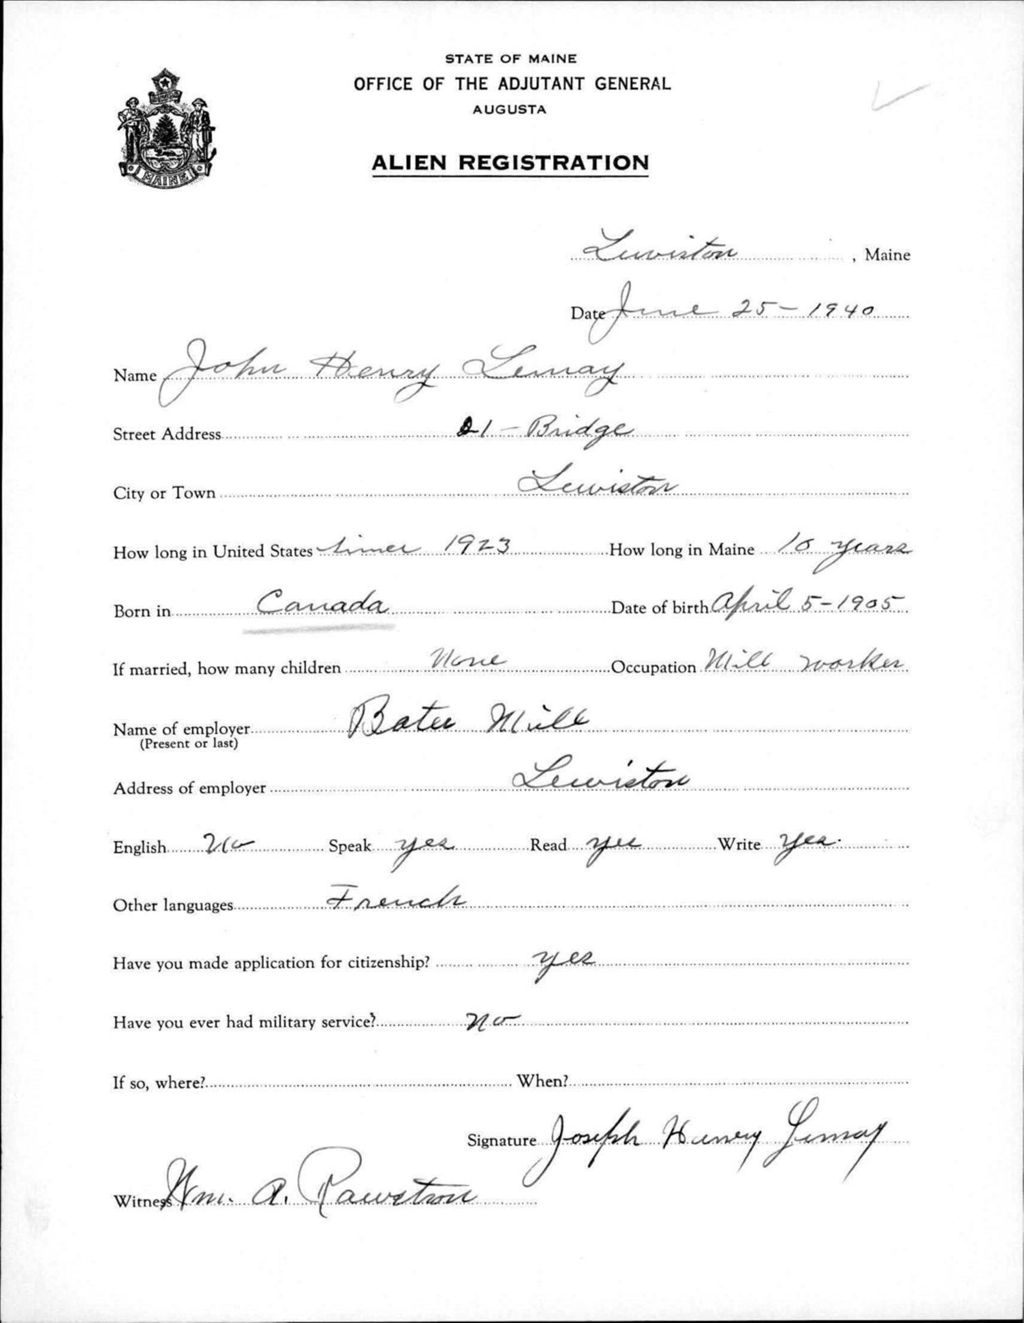 STATE OF MAINE
OFFICE OF THE ADJUTANT GENERAL
AUGUSTA
MAINE
ALIEN REGISTRATION
Lewiston, Maine
Date June 25-1940
Name John Henry Lemay
Street Address 21 - Bridge
City or Town Lewiston
How long in United States since 1923 How long in Maine 10 years
Born in Canada Date of birth April 5-1905
If married, how many children None Occupation Mill worker
Name of employer Bates Mill
(Present or last)
Address of employer Lewiston
English No Speak yes Read yes Write yes.
Other languages French
Have you made application for citizenship? yes
Have you ever had military service? No
If so, where? When?
Signature Joseph Henry Lemay
Witness Wm. A. Rawstron